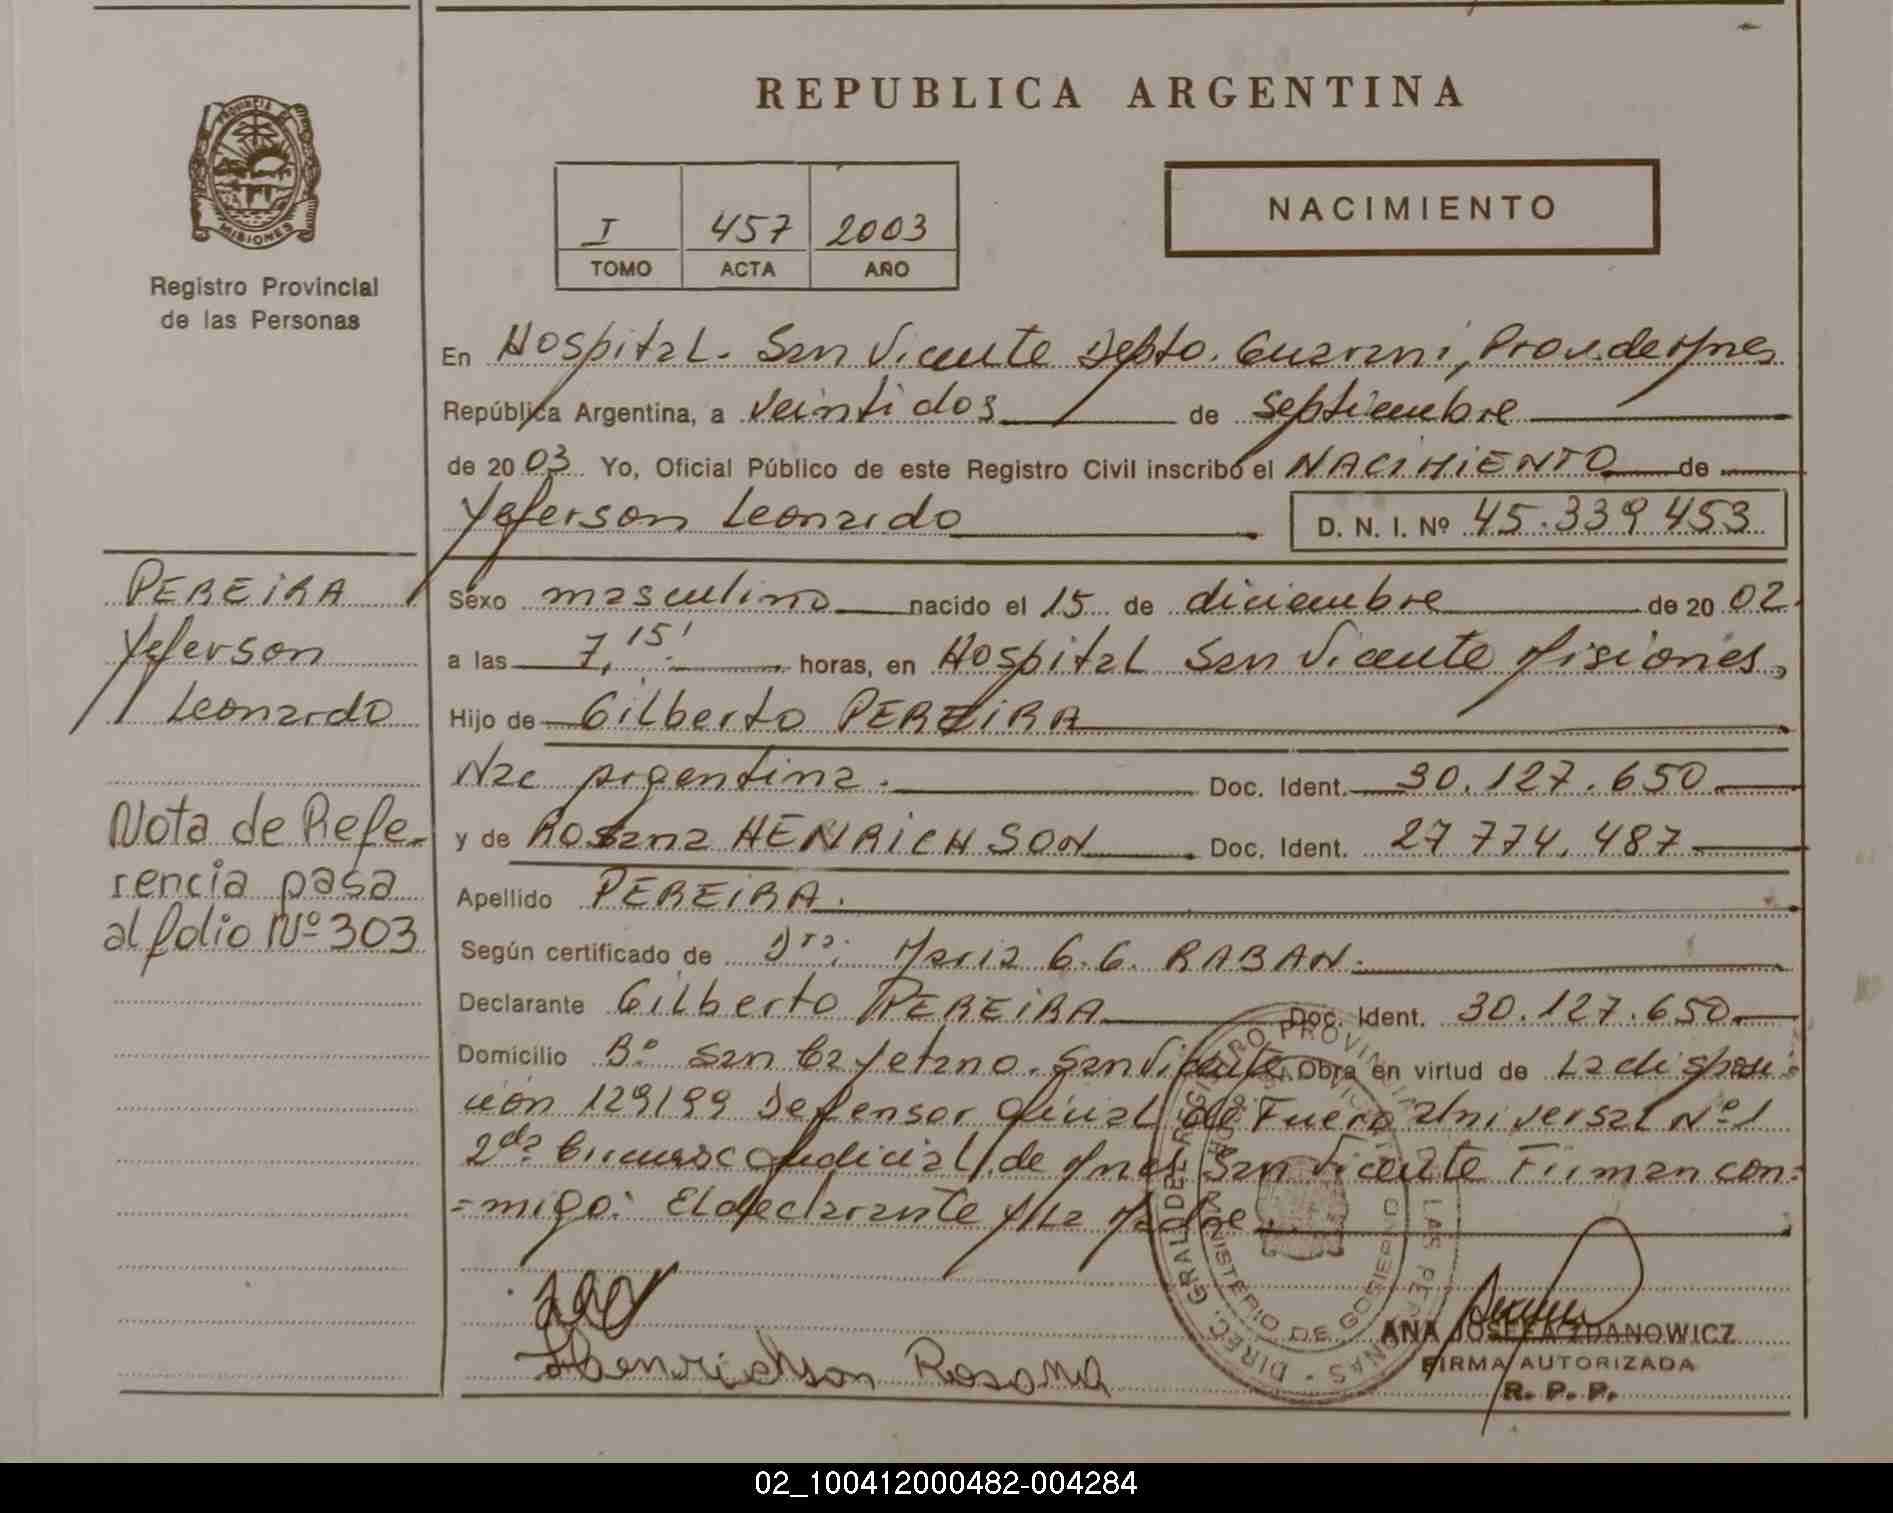 REPUBLICA ARGENTINA
PROVINCIA DE
MISIONES
Registro Provincial
de las Personas
I 457 2003
TOMO ACTA AÑO
NACIMIENTO
En Hospital. San Vicente Depto. Guarani, Prov. de Mnes
República Argentina, a veintidos de septiembre
de 2003 Yo, Oficial Público de este Registro Civil inscribo el NACIMIENTO de
Yeferson Leonardo D. N. I. Nº 45.339 453
PEREIRA
Yeferson
Leonardo
Nota de Refe-
rencia pasa
al folio Nº 303
Sexo masculino nacido el 15 de diciembre de 2002
a las 7,15' horas, en Hospital San Vicente Misiones,
Hijo de Gilberto PEREIRA
Nac argentina. Doc. Ident. 30.127.650
y de Rosana HENRICHSON Doc. Ident. 27 774.487
Apellido PEREIRA.
Según certificado de Dra: Maria G.G. RABAN.
Declarante Gilberto PEREIRA Doc. Ident. 30.127.650
Domicilio Bº San Cayetano. San Vicente. Obra en virtud de La disposi
ción 129199 Defensor Oficial de Fuero Universal Nº 1
2da Circunsc Judicial, de Mnes San Vicente Firman con=
=migo: El declarante y La Madre.
Henrichson Rosana
DIREC. GRAL. DEL REGISTRO PROVINCIAL DE LAS PERSONAS
MINISTERIO DE GOBIERNO
ANA JOSEFA ZDANOWICZ
FIRMA AUTORIZADA
R. P. P.
02_100412000482-004284